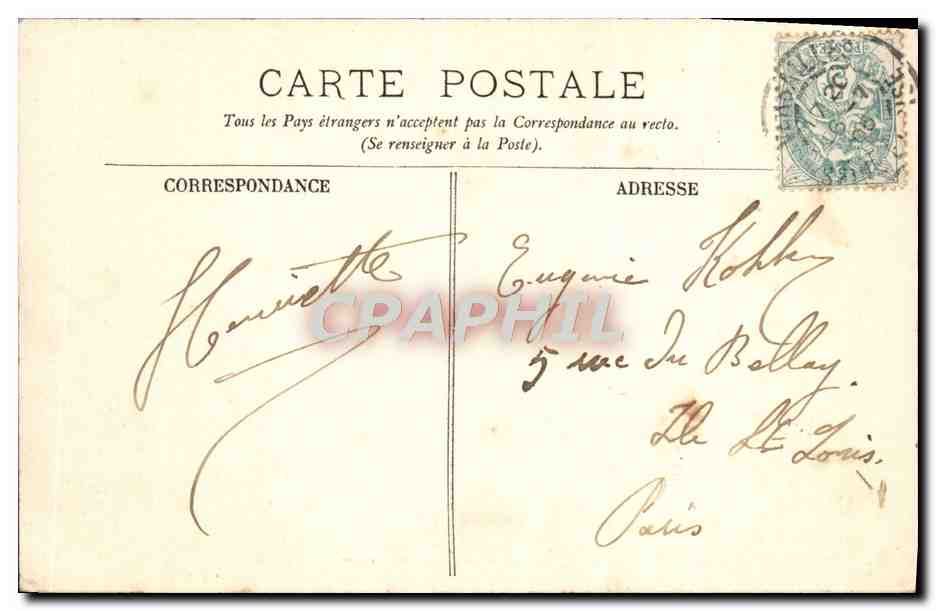 CARTE POSTALE
Tous les Pays étrangers n'acceptent pas la Correspondance au recto.
(Se renseigner à la Poste).
CORRESPONDANCE
ADRESSE
Henriette
Eugenie
5 rue du Bellay
Ile St Louis.
Paris
CPAPHIL